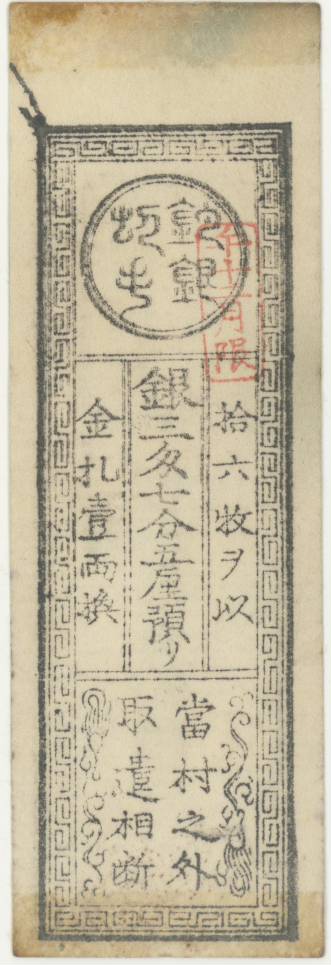 銀
切手
午十二月限
拾六枚ヲ以
銀三匁七分五厘預リ
金札壹両換
當村之外
取遣相断